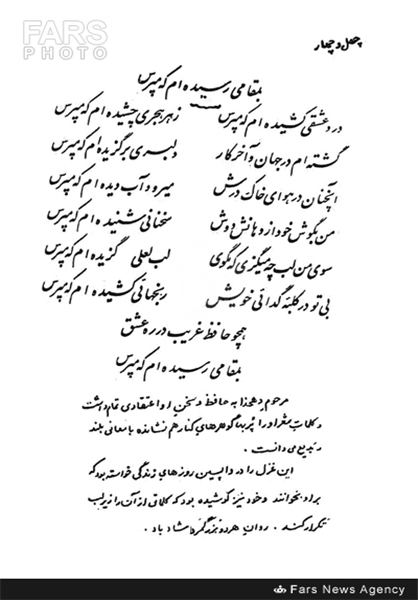 FARS
PHOTO
چهل و چهار
بمقامی رسیده ام که مپرس
درد عشقی کشیده ام که مپرس زهر هجری چشیده ام که مپرس
گشته ام در جهان و آخر کار دلبری برگزیده ام که مپرس
آنچنان در هوای خاک درش میرود آب دیده ام که مپرس
من بگوش خود از دهانش دوش سخنانی شنیده ام که مپرس
سوی من لب چه میگزی که مگوی لب لعلی گزیده ام که مپرس
بی تو در کلبه گدائی خویش رنجهائی کشیده ام که مپرس
همچو حافظ غریب در ره عشق
بمقامی رسیده ام که مپرس
مرحوم دهخدا به حافظ و سخن او اعتقادی تمام داشت
و کلمات شعر او را پُربها گوهرهای کنار هم نشانده با معانی بلند
و بدیع می دانست.
این غزل را در واپسین روزهای زندگی خواسته بود که
براو بخوانند و خود نیز کوشیده بود که کلماتی از آن را زیر لب
تکرار کند. روان هر دو بزرگمرد شاد باد.
Fars News Agency